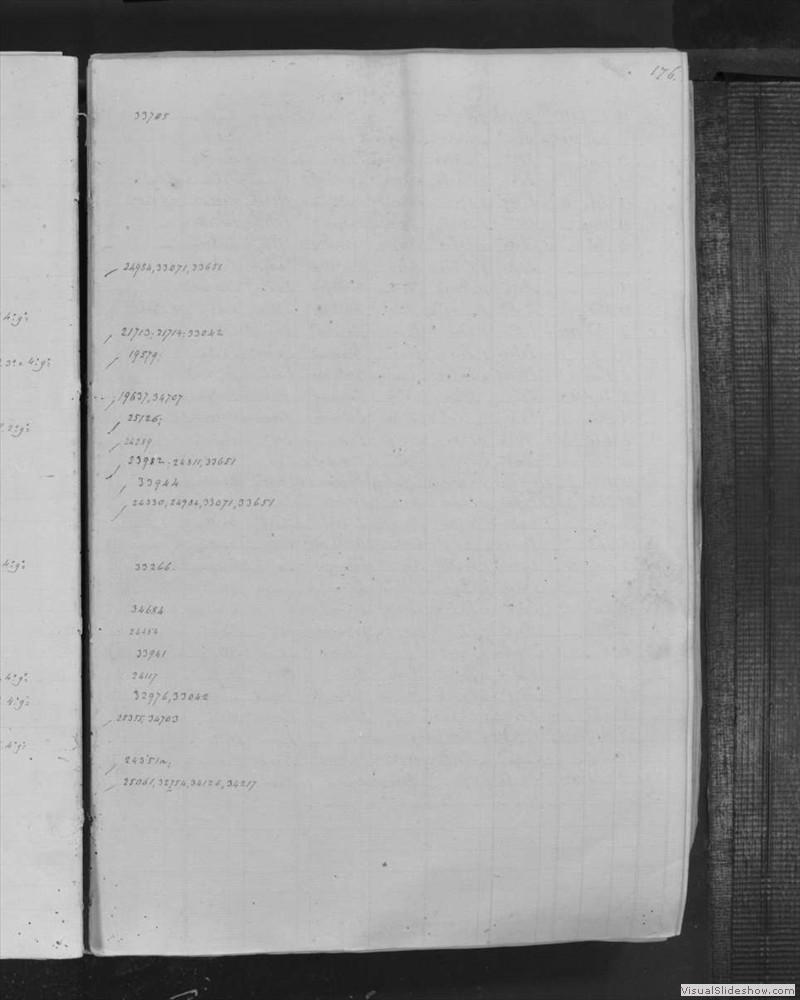 176.
33705
24984,33071,33651
21713; 21714; 33042
19579;
19637,34707
25126;
24289
23982. 24311,33651
33944
24330,24984,33071,33651
33266.
34684
24484
33941
24117
32976,33042
25355,34703
24351a;
25061,32754,34126,34217
4:g:
4:g:
2:g:
4:g:
4:g:
4:g:
4:g:
VisualSlideshow.com